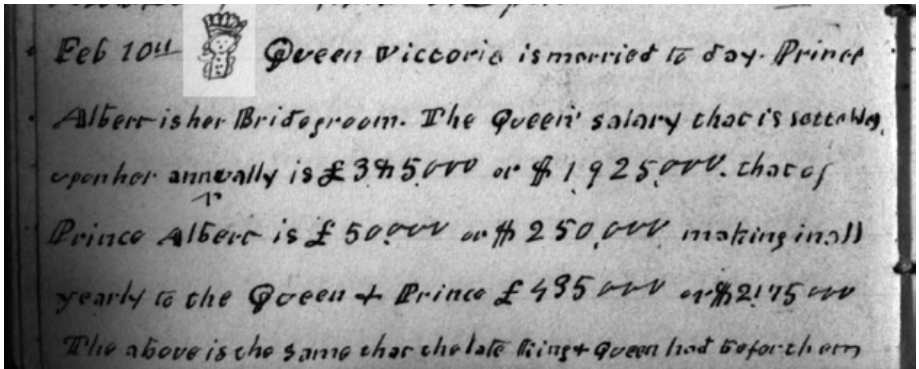 Feb 10th Queen Victoria is married to day. Prince
Albert is her Bridegroom. The Queen' salary that is settled
upon her annually is £385.000 or $1,925,000. that of
Prince Albert is £50,000 or $250,000 making in all
yearly to the Queen + Prince £435000 or $2,175000
The above is the same that the late King + Queen had before them